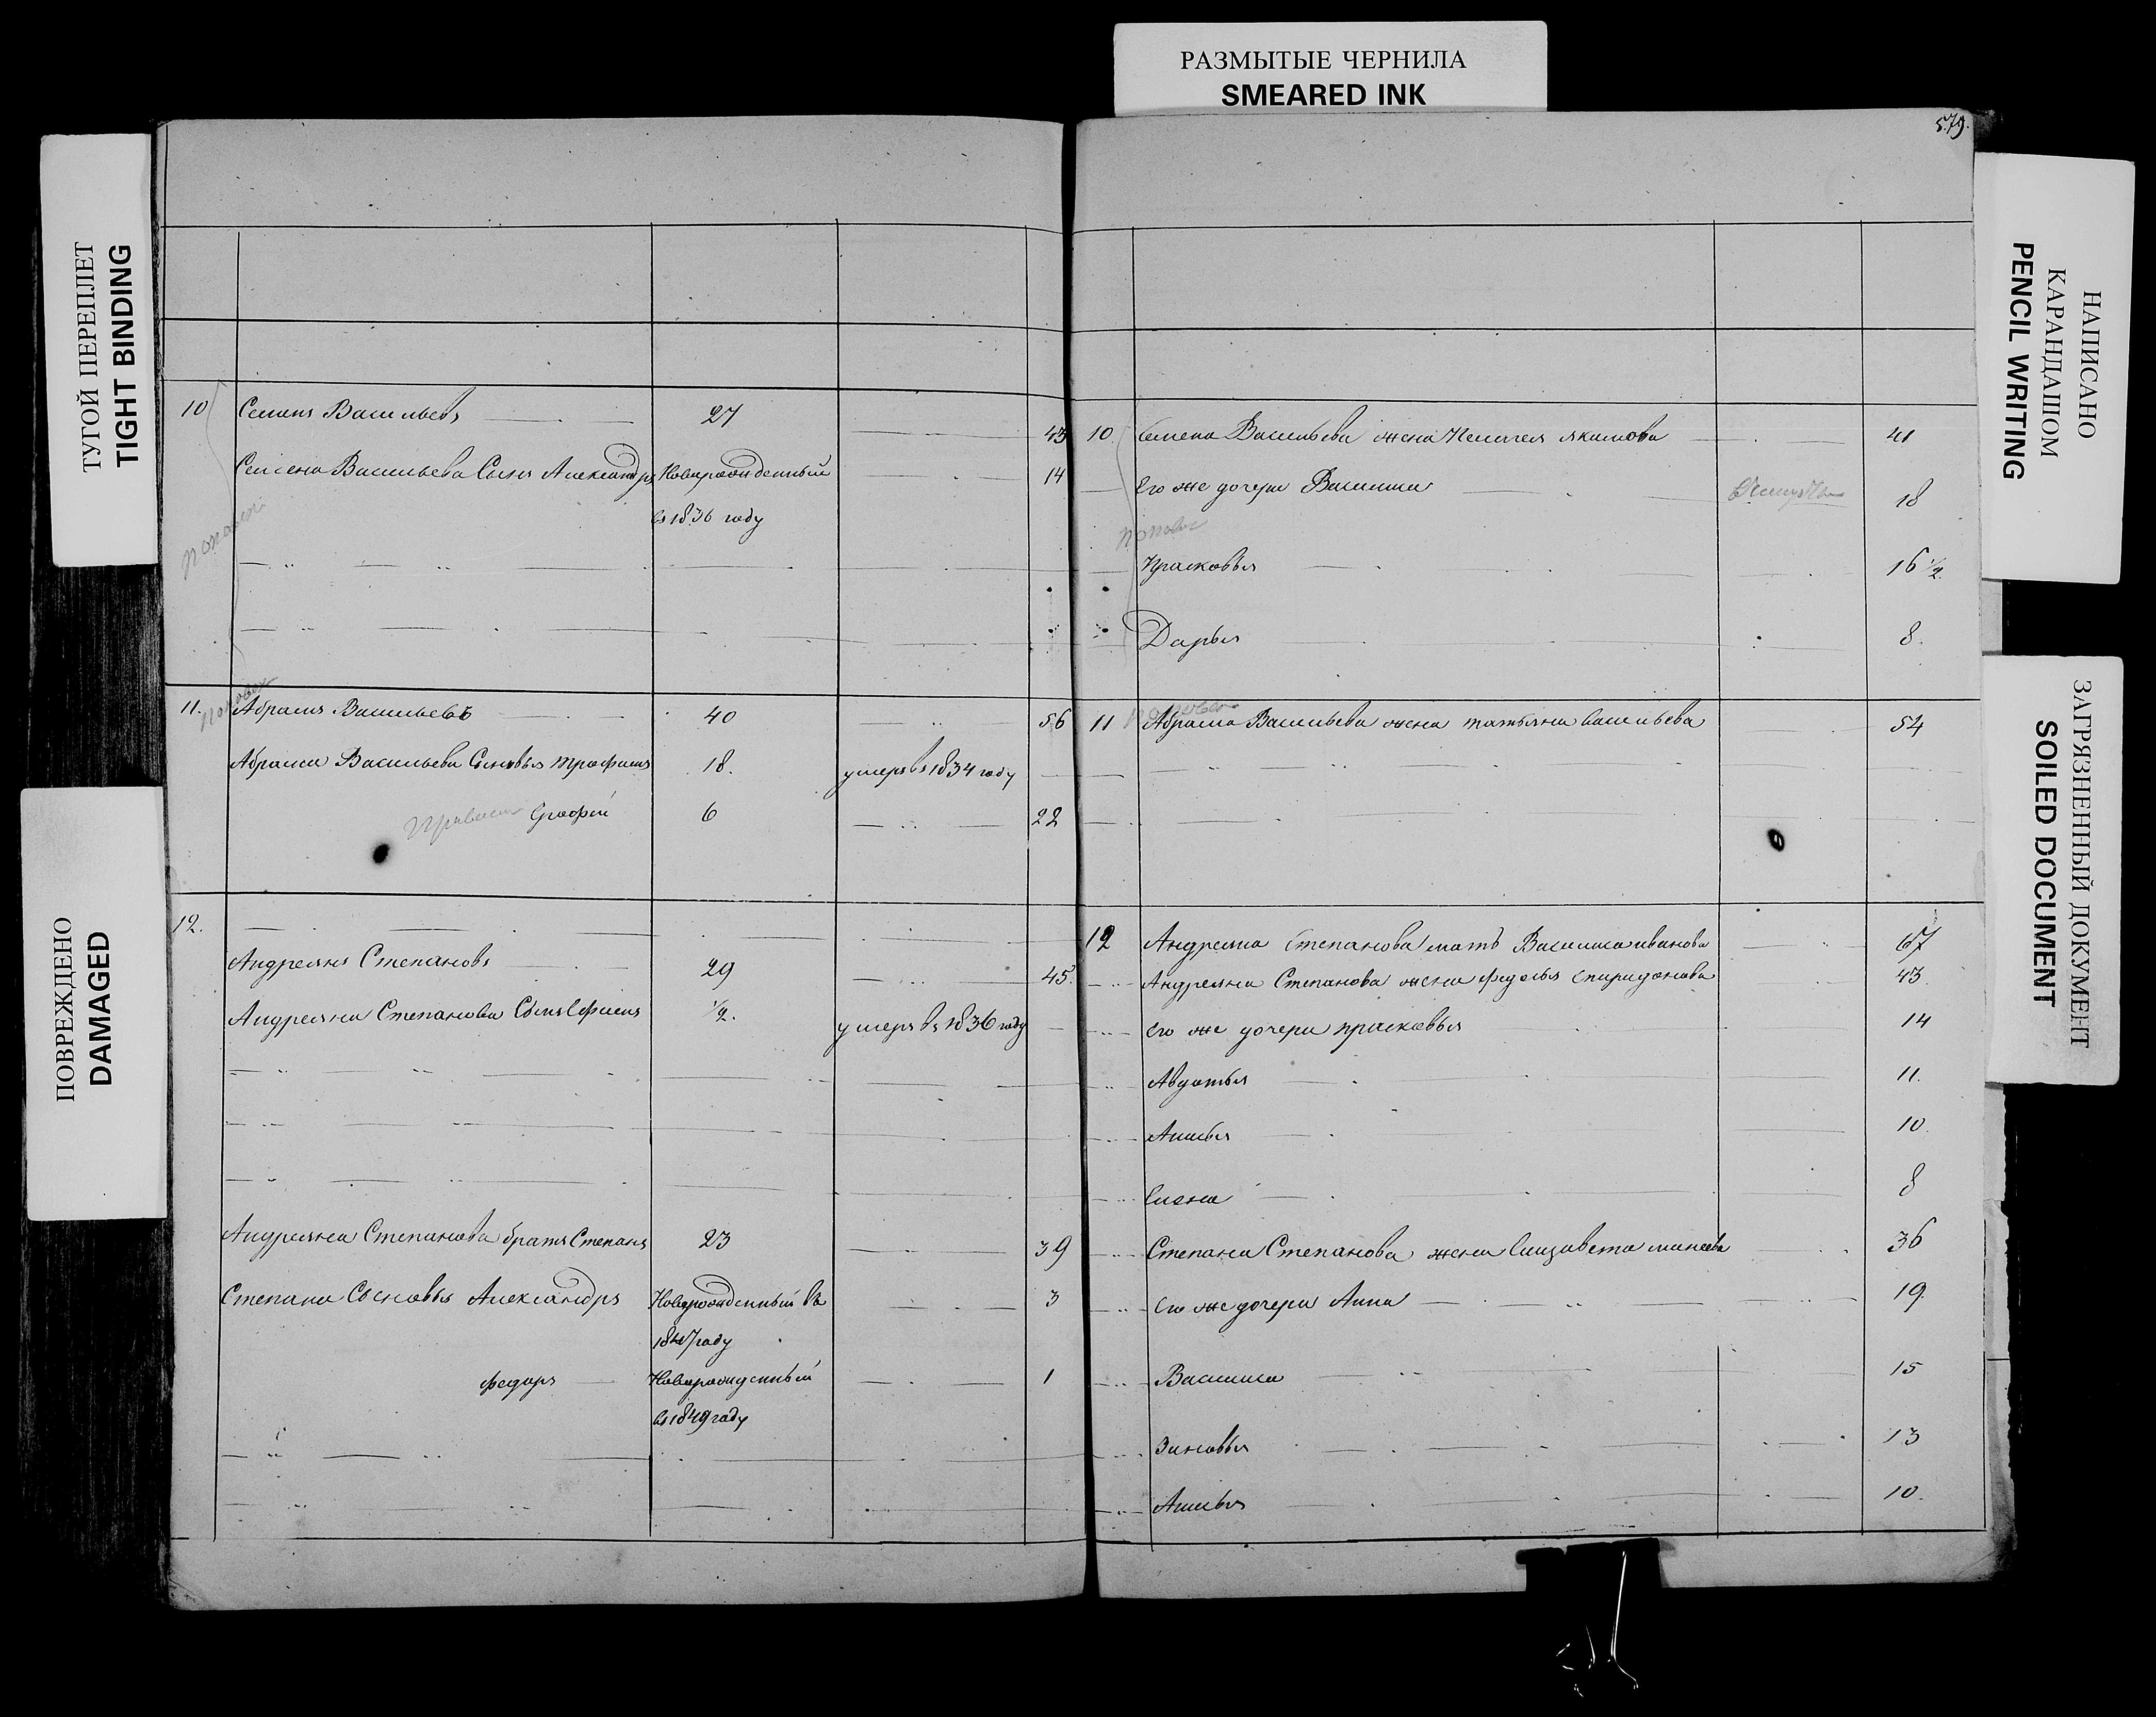 РАЗМЫТЫЕ ЧЕРНИЛА
SMEARED INK
ТУГОЙ ПЕРЕПЛЕТ
TIGHT BINDING
ПОВРЕЖДЕНО
DAMAGED
НАПИСАНО
КАРАНДАШОМ
PENCIL WRITING
ЗАГРЯЗНЕННЫЙ ДОКУМЕНТ
SOILED DOCUMENT
579.
10 Семенъ Васильевъ 27 43
Семена Васильева Сынъ Александръ Новорожденный 14
въ 1836 году
11. Абрамъ Васильевъ 40 56
Абрама Васильева Сыновья Трофимъ 18. умеръ въ 1834 году
6 22
12.
Андреянъ Степановъ 29 45.
Андреяна Степанова Сынъ Ефимъ 1/2. умеръ въ 1836 году
Андреяна Степанова братъ Степанъ 23 39
Степана Сыновья Александръ Новорожденный въ 3
1847 году
Федоръ Новорожденный 1
въ 1849 году
10 Семена Васильева жена Пелагея Якимова 41
Его же дочери Василиса 18
Прасковья 16 1/2
Дарья 8.
11 Абрама Васильева жена татьяна васильева 54
12 Андреяна Степанова мать Василиса иванова 67
Андреяна Степанова жена федосья спиридонова 43
Его же дочери прасковья 14
Авдотья 11.
Анисья 10
Елена 8
Степана Степанова жена Елизавета минеева 36
его же дочери Анна 19.
Василиса 15
Зиновья 13
Анисья 10.